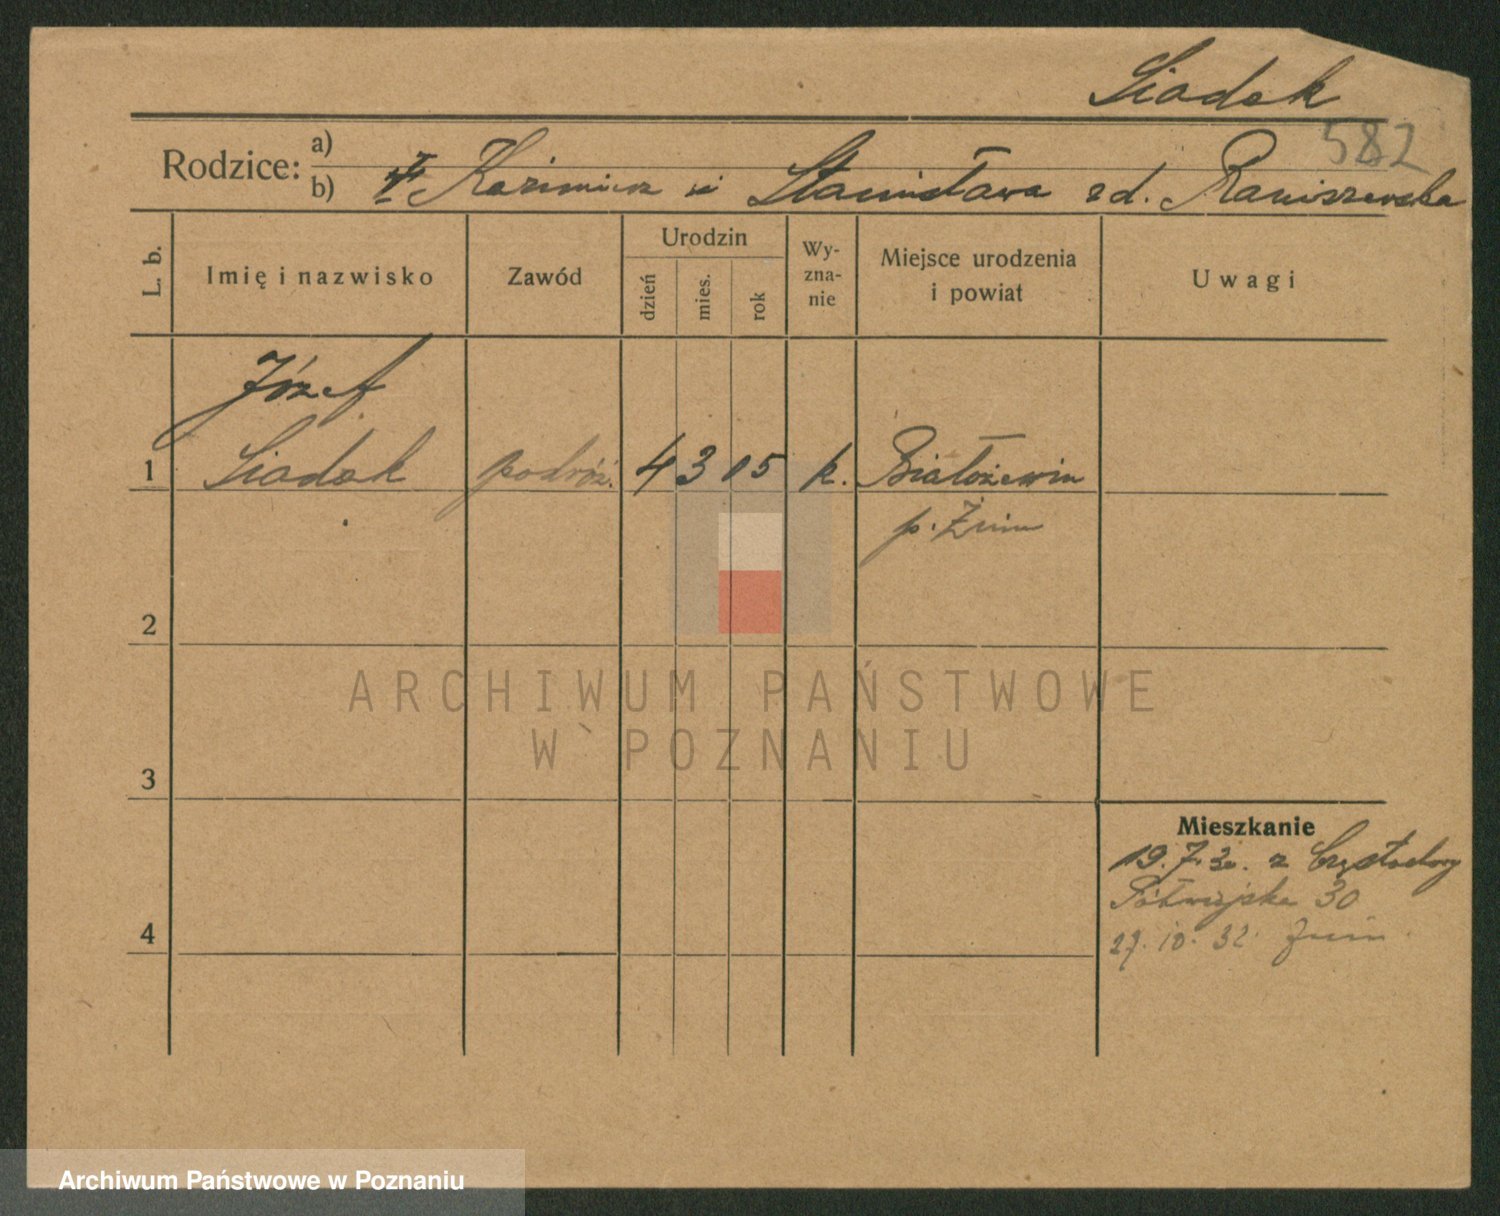 Siadak
582
Rodzice: a)
b) Kazimierz i Stanisława zd. Raniszewska
L. b.
Imię i nazwisko
Zawód
Urodzin
dzień
mies.
rok
Wy-
zna-
nie
Miejsce urodzenia
i powiat
Uwagi
Józef
1 Siadak podróż. 4 3 05 k. Białożewin
p. Żnin
2
ARCHIWUM PAŃSTWOWE
W POZNANIU
3
Mieszkanie
19.7.30. z Częstochowy
Półwiejska 30
4
27.10.32. Żnin
Archiwum Państwowe w Poznaniu